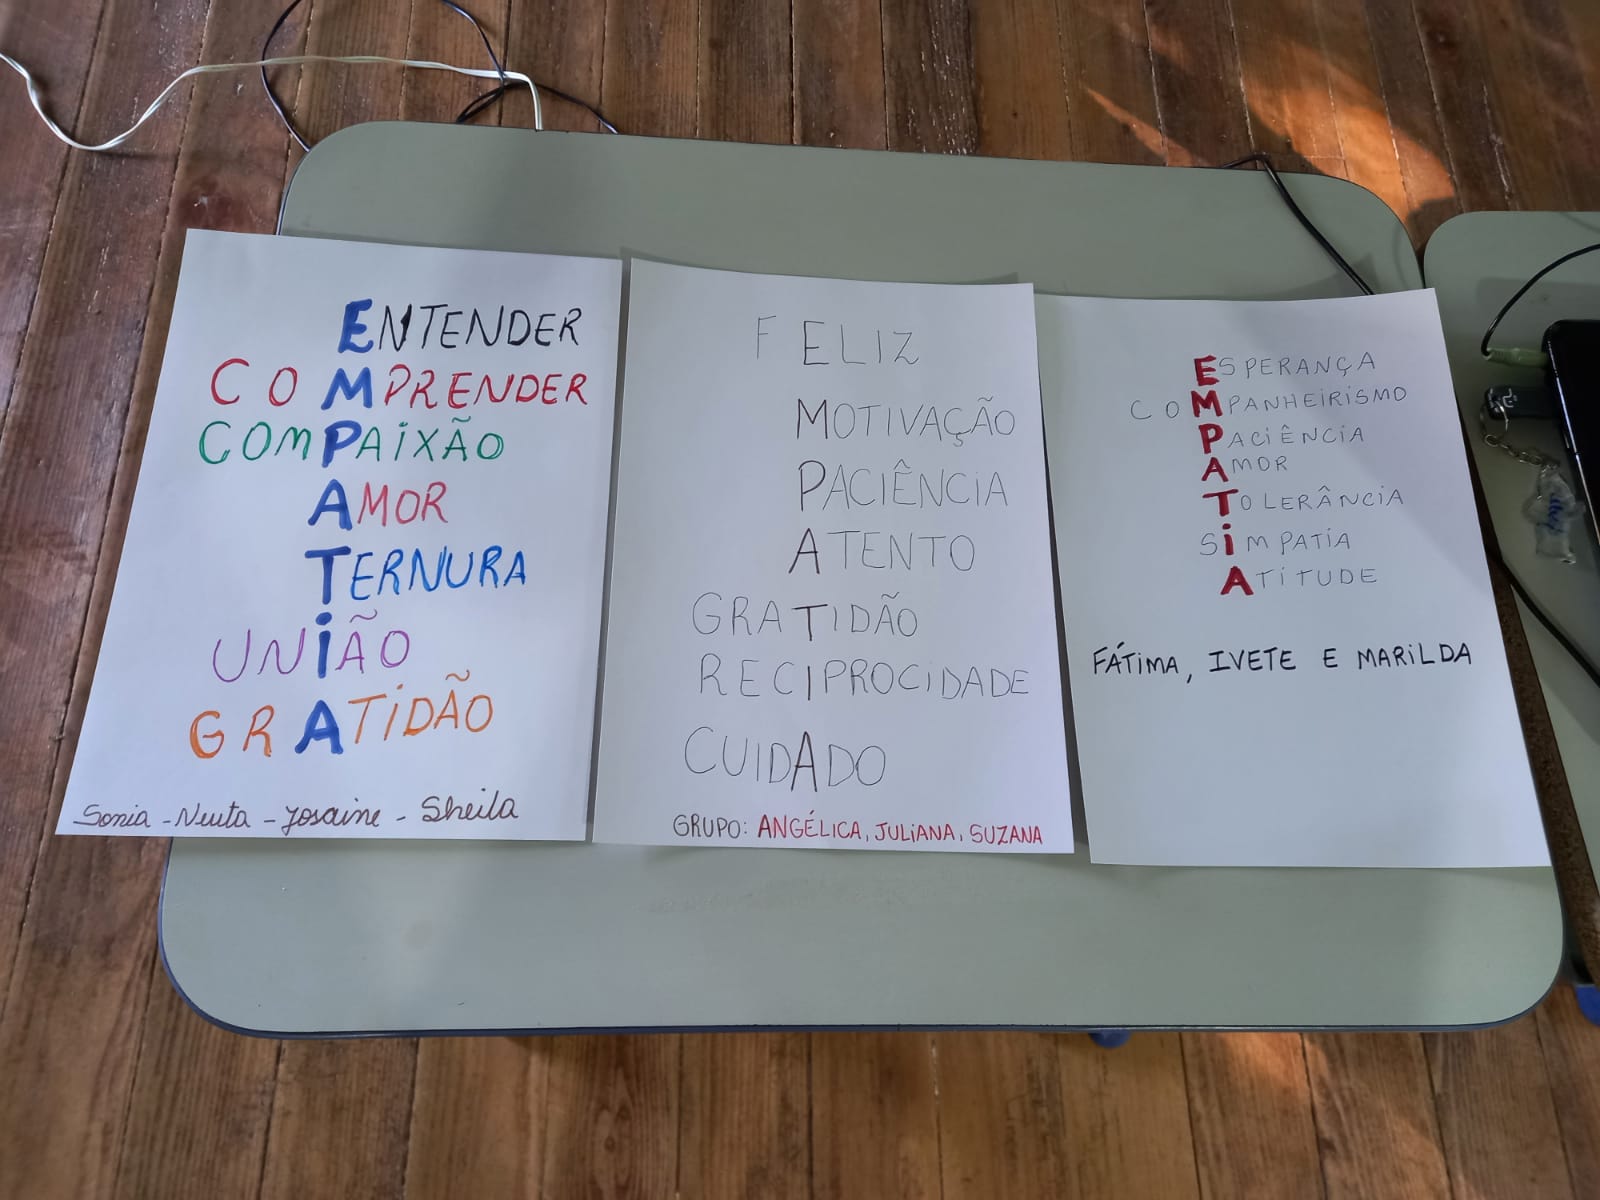 ENTENDER
COMPRENDER
COMPAIXÃO
AMOR
TERNURA
UNIÃO
GRATIDÃO
Sonia - Neuta - Josaine - Sheila
FELIZ
MOTIVAÇÃO
PACIÊNCIA
ATENTO
GRATIDÃO
RECIPROCIDADE
CUIDADO
GRUPO: ANGÉLICA, JULIANA, SUZANA
ESPERANÇA
COMPANHEIRISMO
PACIÊNCIA
AMOR
TOLERÂNCIA
SIMPATIA
ATITUDE
FÁTIMA, IVETE E MARILDA